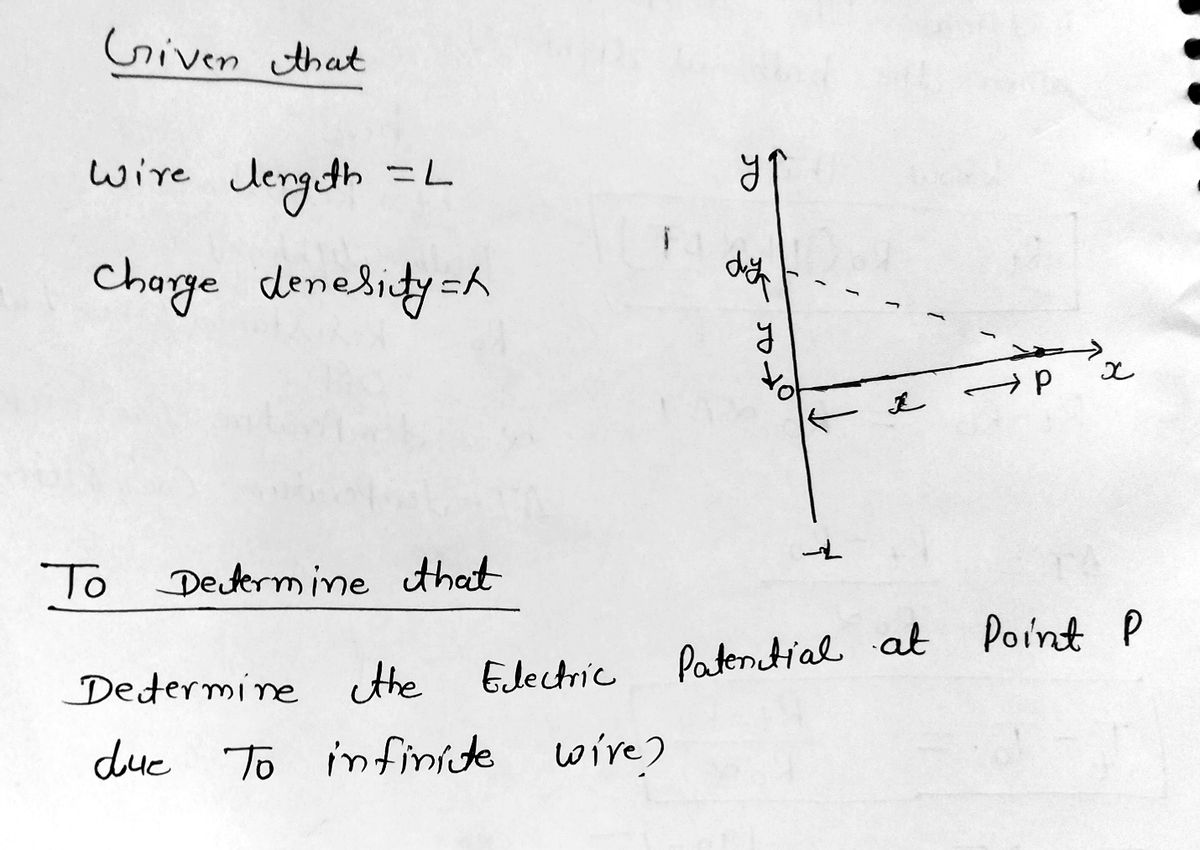 Given that
wire length = L
Charge denesity = λ
y
dy
y
O
x
P
x
-L
To Determine that
Determine the Electric Patential at Point P
due To infinite wire?